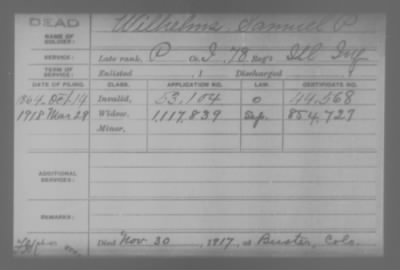 DEAD
NAME OF SOLDIER: Wilhelms, Samuel P.
SERVICE: Late rank, P Co. I, 78 Reg't Ill Inf
TERM OF SERVICE: Enlisted , 1 Discharged , 1
DATE OF FILING. CLASS. APPLICATION NO. LAW. CERTIFICATE NO.
1864 Oct. 14 Invalid, 53,104 O 44,568
1918 Mar 28 Widow, 1,117,839 854,727
Minor,
ADDITIONAL SERVICES:
REMARKS:
Died Nov. 20, 1917, at Buster, Colo.